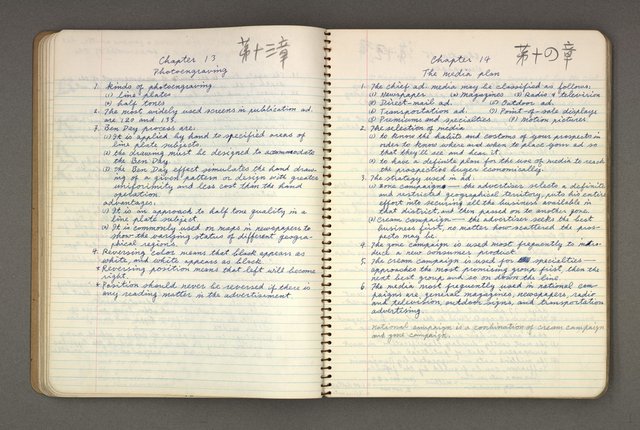 Chapter 13 第十三章
Photoengraving
1. Kinds of photoengraving
(1) line plates
(2) half tones
2. The most widely used screens in publication ad.
are 120 and 133.
3. Ben Day process are:
(1) It is applied by hand to specified areas of
line plate subjects.
(2) the drawing must be designed to accommodate
the Ben Day
(3) The Ben Day effect simulates the hand draw-
ing of a given pattern or design with greater
uniformity and less cost than the hand
operation
advantages:
(1) It is an approach to half tone quality in a
line plate subject
(2) It is commonly used on maps in newspapers to
show the varying status of different geogra-
phical regions.
4. Reversing color means that black appears as
white and white appears as black
* Reversing position means that left will become
right.
* Position should never be reversed if there is
any reading matter in the advertisement
Chapter 14 第十四章
The media plan
1. The chief ad. media may be classified as follows:
(1) Newspaper (2) Magazines (3) Radio & television
(4) Direct-mail ad. (5) Outdoor ad.
(6) Transportation ad. (7) Point-of-sale displays
(8) Premiums and specialties (9) Motion pictures
2. The selection of media
(1) to know the habits and customs of your prospects in
order to know where and when to place your ad so
that they'll see and hear it.
(2) to have a definite plan for the use of media to reach
the prospective buyer economically.
3. The strategy used in ad.
(1) zone campaign — the advertiser selects a definite
and restricted geographical territory, puts his entire
effort into securing all the business available in
that district, and then passes on to another zone.
(2) Cream campaign — the advertiser seeks the best
business first, no matter how scattered the pros-
pects may be.
4. The zone campaign is used most frequently to intro-
duce a new consumer product
5. The cream campaign is used for specialties —
approaches the most promising group first, then the
next best group and so on down the line.
6. The media most frequently used in national cam-
paigns are general magazines, newspapers, radio
and television, outdoor signs, and transportation
advertising.
National campaign is a combination of cream campaign
and zone campaign.